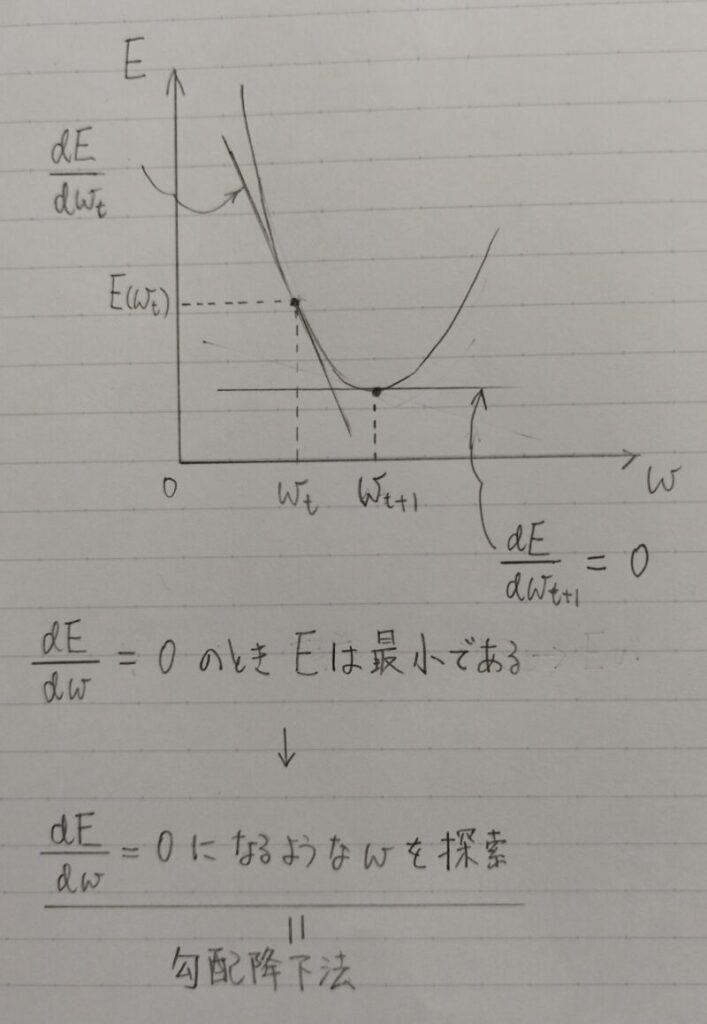 E
dE/dw_t
E(w_t)
0
w_t
w_{t+1}
w
dE/dw_{t+1} = 0
dE/dw = 0 のとき Eは最小である
↓
dE/dw = 0 になるようなwを探索
||
勾配降下法